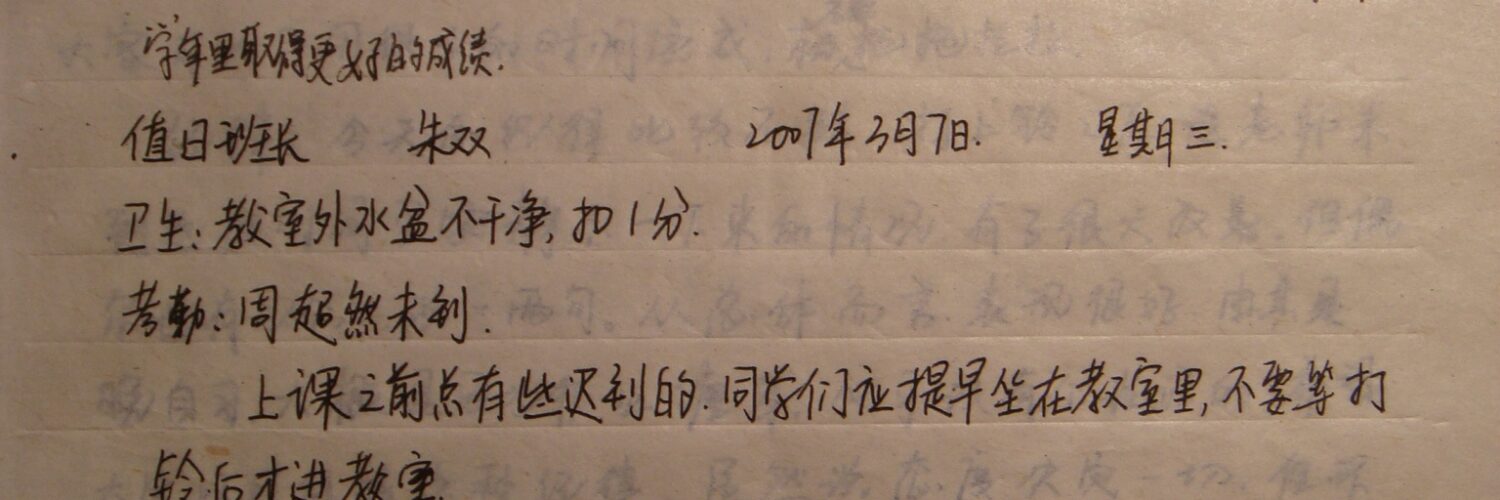 学年里取得更好的成绩.
值日班长 朱双 2007年3月7日. 星期三.
卫生:教室外水盆不干净,扣1分.
考勤:周超然未到.
上课之前点有些迟到的.同学们应提早坐在教室里,不要等打
铃后才进教室